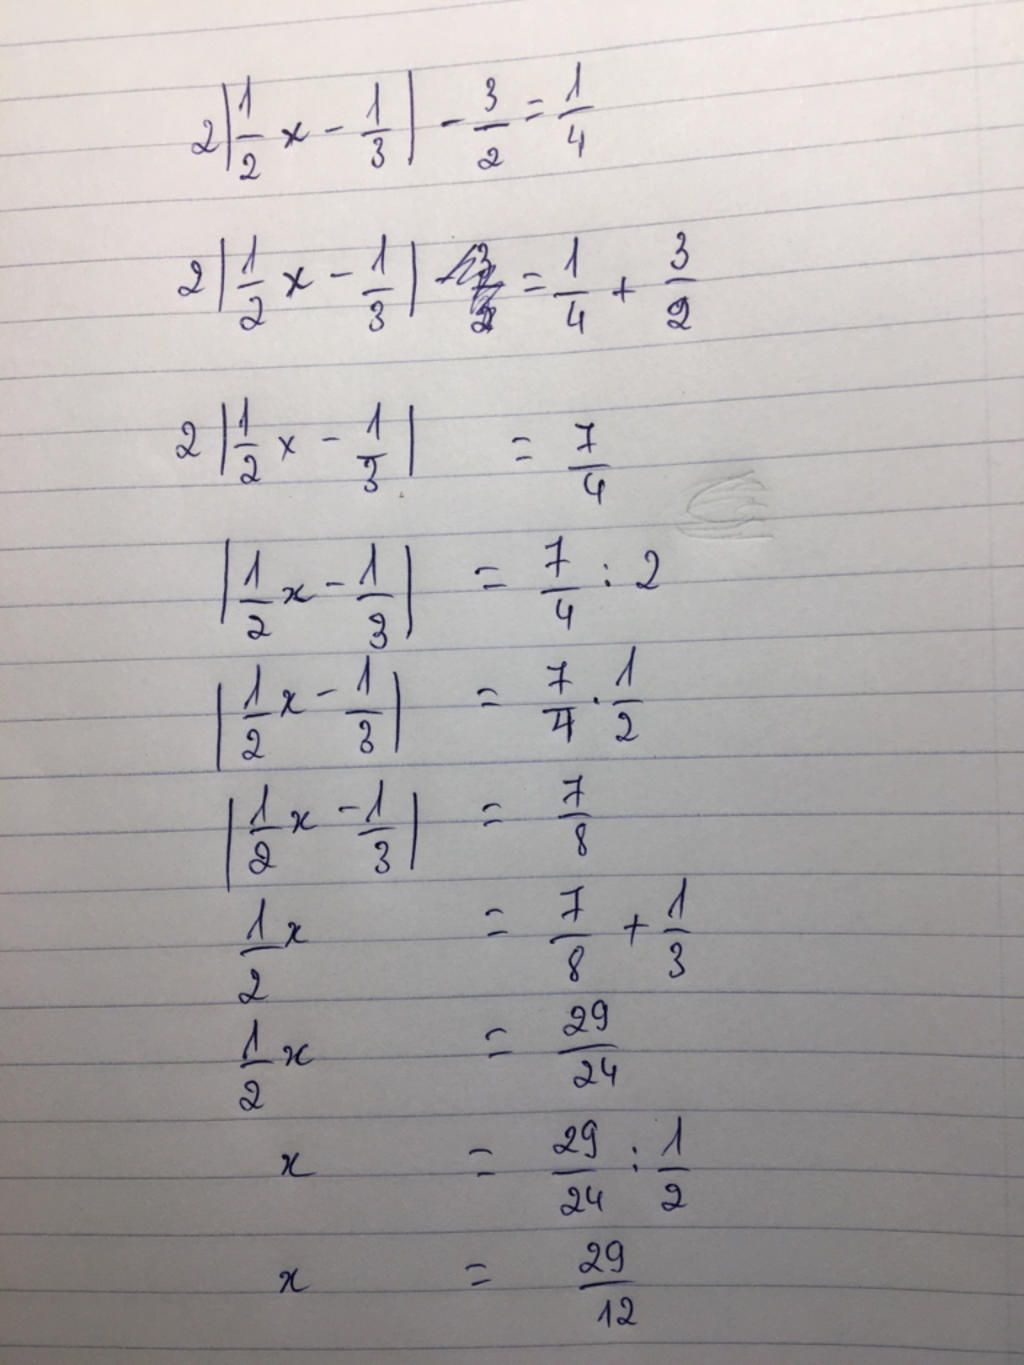 2|1/2 x - 1/3| - 3/2 = 1/4
2|1/2 x - 1/3| = 1/4 + 3/2
2|1/2 x - 1/3| = 7/4
|1/2 x - 1/3| = 7/4 : 2
|1/2 x - 1/3| = 7/4 · 1/2
|1/2 x - 1/3| = 7/8
1/2 x = 7/8 + 1/3
1/2 x = 29/24
x = 29/24 : 1/2
x = 29/12